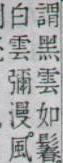 謂黑雲如鬈
白雲彌漫風